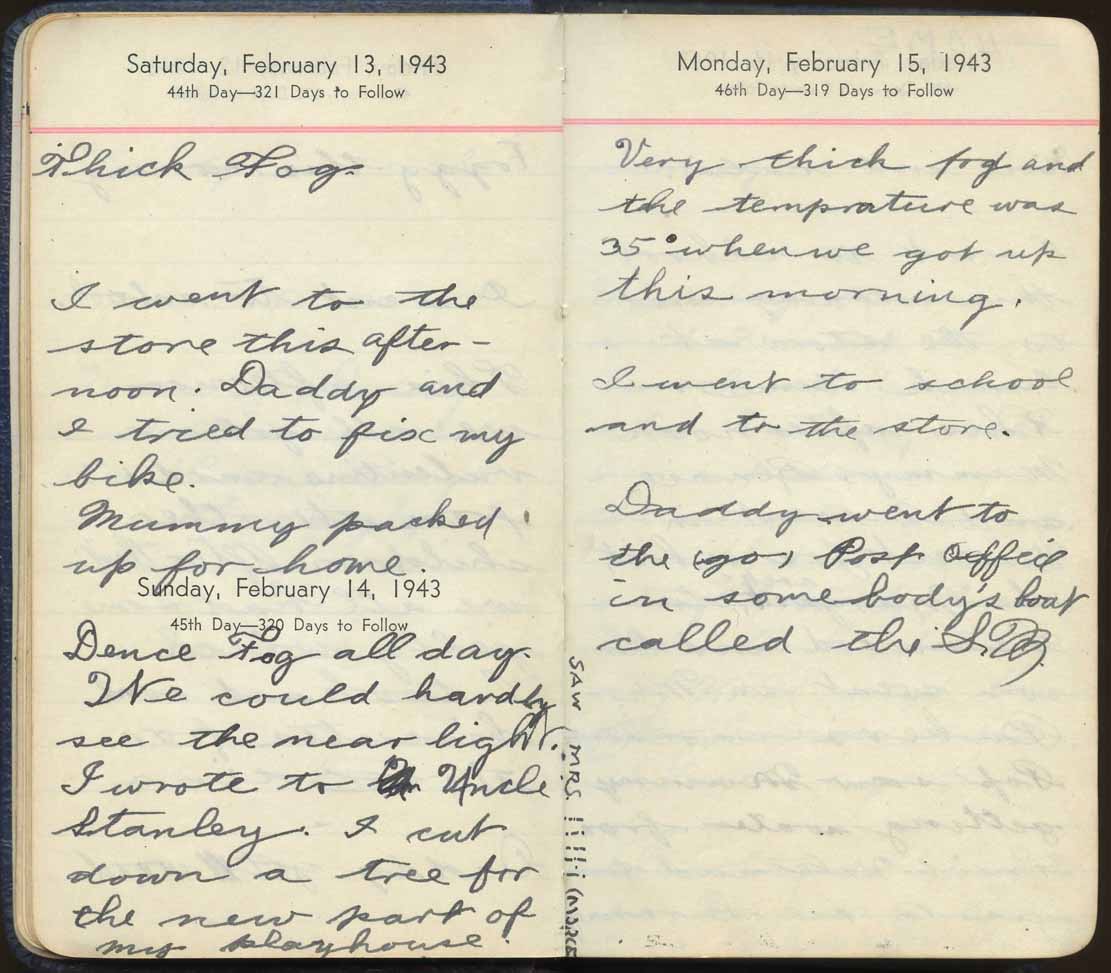 Saturday, February 13, 1943
44th Day—321 Days to Follow
Thick Fog.
I went to the
store this after-
noon. Daddy and
I tried to fix my
bike.
Mummy packed
up for home.
Sunday, February 14, 1943
45th Day—320 Days to Follow
Dence Fog all day.
We could hardly
see the near light.
I wrote to Uncle
Stanley. I cut
down a tree for
the new part of
my playhouse.
SAW MRS.
Monday, February 15, 1943
46th Day—319 Days to Follow
Very thick fog and
the temprature was
35° when we got up
this morning.
I went to school
and to the store.
Daddy went to
the (go) Post Office
in somebody's boat
called the